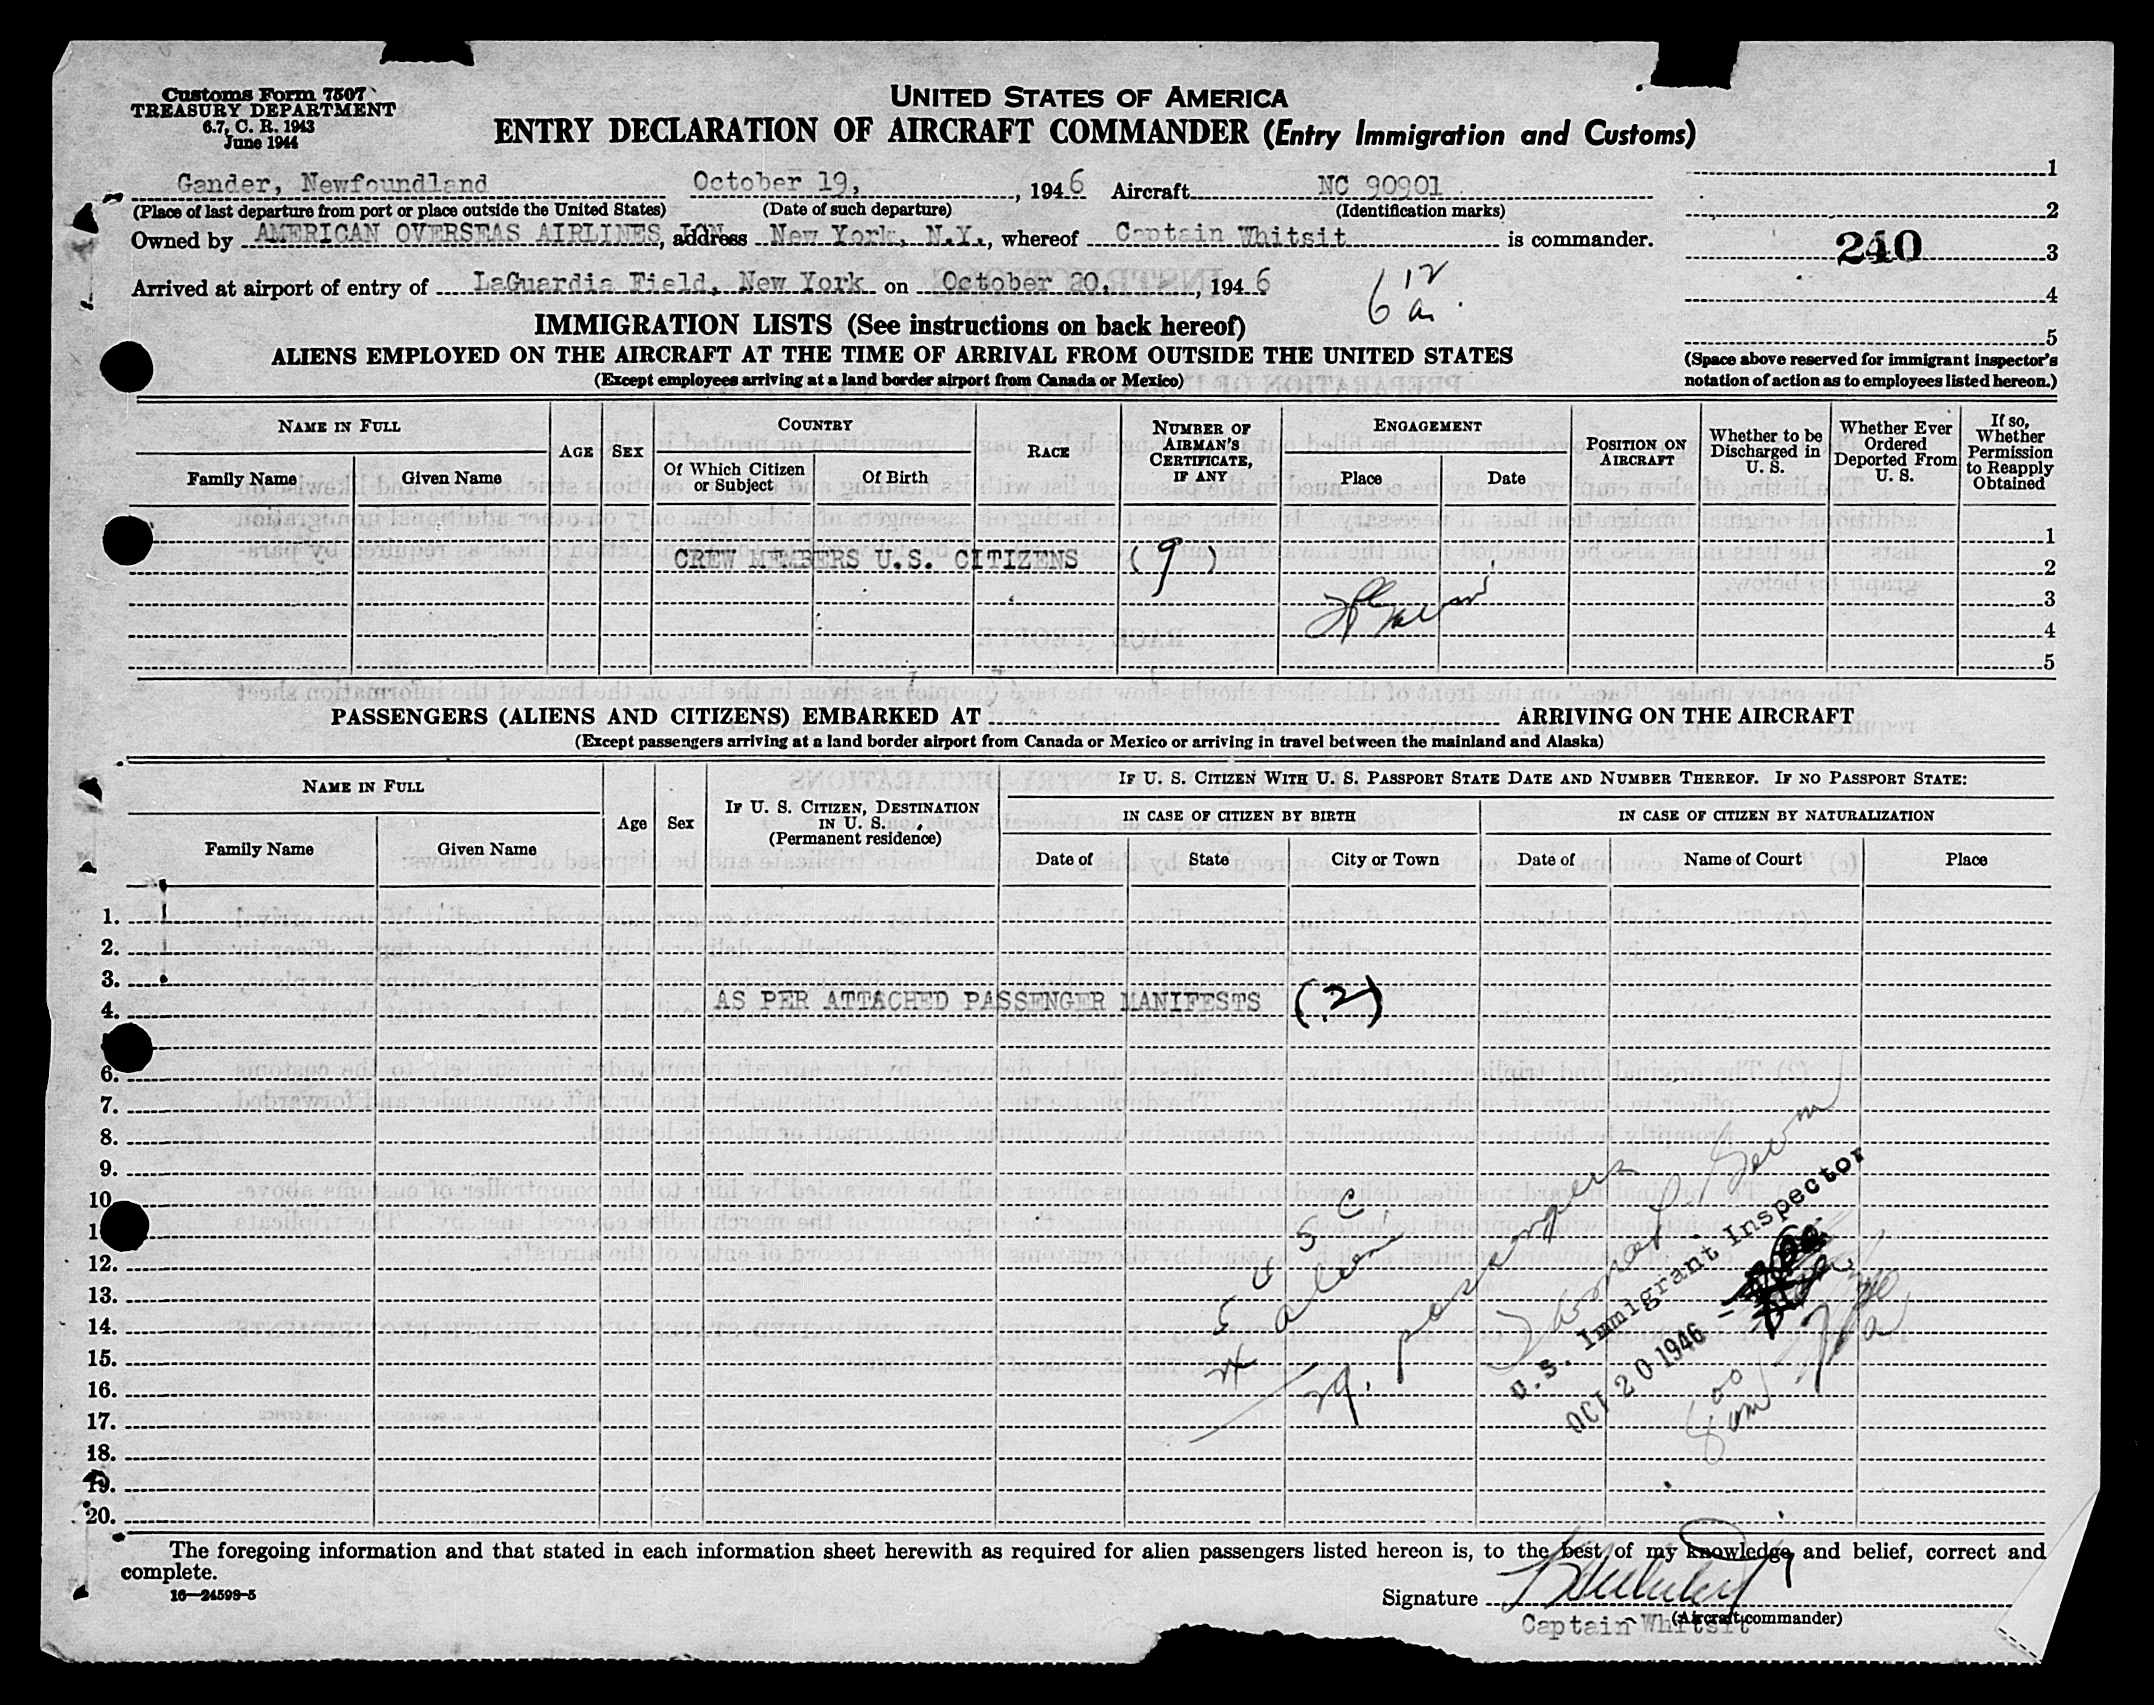 Customs Form 7507
TREASURY DEPARTMENT
6.7, C. R. 1943
June 1944
UNITED STATES OF AMERICA
ENTRY DECLARATION OF AIRCRAFT COMMANDER (Entry Immigration and Customs)
Gander, Newfoundland October 19, , 1946 Aircraft NC 90901
(Place of last departure from port or place outside the United States) (Date of such departure) (Identification marks)
Owned by AMERICAN OVERSEAS AIRLINES, address New York, N.Y., whereof Captain Whitsit is commander.
Arrived at airport of entry of LaGuardia Field, New York on October 20, , 1946
6 12 a.
1
2
240 3
4
5
(Space above reserved for immigrant inspector's
notation of action as to employees listed hereon.)
IMMIGRATION LISTS (See instructions on back hereof)
ALIENS EMPLOYED ON THE AIRCRAFT AT THE TIME OF ARRIVAL FROM OUTSIDE THE UNITED STATES
(Except employees arriving at a land border airport from Canada or Mexico)
NAME IN FULL
Family Name Given Name
AGE SEX
COUNTRY
Of Which Citizen or Subject Of Birth
RACE
NUMBER OF AIRMAN'S CERTIFICATE, IF ANY
ENGAGEMENT
Place Date
POSITION ON AIRCRAFT
Whether to be Discharged in U. S.
Whether Ever Ordered Deported From U. S.
If so, Whether Permission to Reapply Obtained
1
CREW MEMBERS U.S. CITIZENS (9) 2
3
4
5
PASSENGERS (ALIENS AND CITIZENS) EMBARKED AT ARRIVING ON THE AIRCRAFT
(Except passengers arriving at a land border airport from Canada or Mexico or arriving in travel between the mainland and Alaska)
NAME IN FULL
Family Name Given Name
Age Sex
IF U. S. CITIZEN, DESTINATION IN U. S.
(Permanent residence)
IF U. S. CITIZEN WITH U. S. PASSPORT STATE DATE AND NUMBER THEREOF. IF NO PASSPORT STATE:
IN CASE OF CITIZEN BY BIRTH IN CASE OF CITIZEN BY NATURALIZATION
Date of State City or Town Date of Name of Court Place
1.
2.
3.
AS PER ATTACHED PASSENGER MANIFESTS (2)
4.
6.
7.
8.
9.
10
11
12.
13.
14.
15.
16.
17.
18.
19.
20.
5 U S C
24 aliens
29. passengers
U. S. Immigrant Inspector
OCT 20 1946
8 00 am
The foregoing information and that stated in each information sheet herewith as required for alien passengers listed hereon is, to the best of my knowledge and belief, correct and
complete.
16—24599-5
Signature
(Aircraft commander)
Captain Whitsit